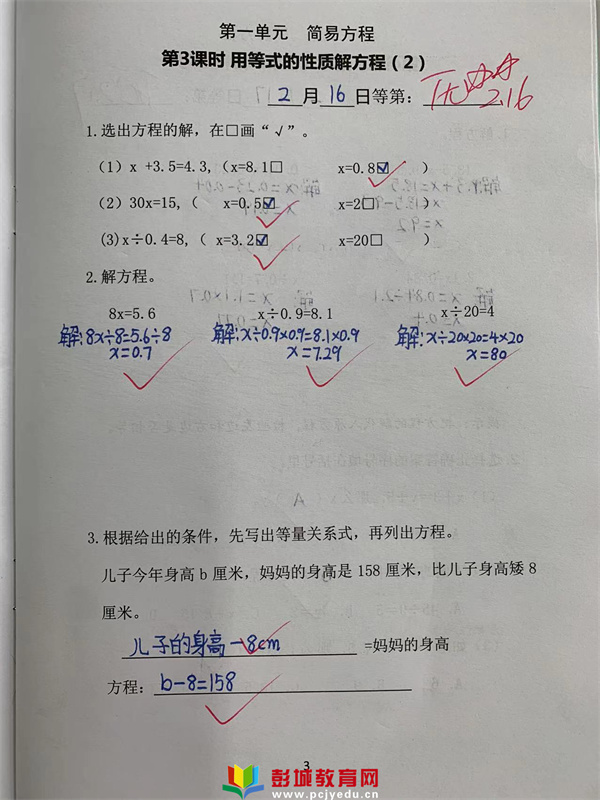 第一单元 简易方程
第3课时 用等式的性质解方程（2）
2月16日等第： 优 2.16
1.选出方程的解，在□画“√”。
（1）x +3.5=4.3,（x=8.1□ x=0.8☑ ）
（2）30x=15,（ x=0.5☑ x=2□ ）
(3)x÷0.4=8,（ x=3.2☑ x=20□ ）
2.解方程。
8x=5.6 x÷0.9=8.1 x÷20=4
解:8x÷8=5.6÷8 解:x÷0.9×0.9=8.1×0.9 解:x÷20×20=4×20
x=0.7 x=7.29 x=80
3.根据给出的条件，先写出等量关系式，再列出方程。
儿子今年身高 b 厘米，妈妈的身高是 158 厘米，比儿子身高矮 8
厘米。
儿子的身高-8cm =妈妈的身高
方程：b-8=158
3
彭城教育网
www.pcjyedu.cn